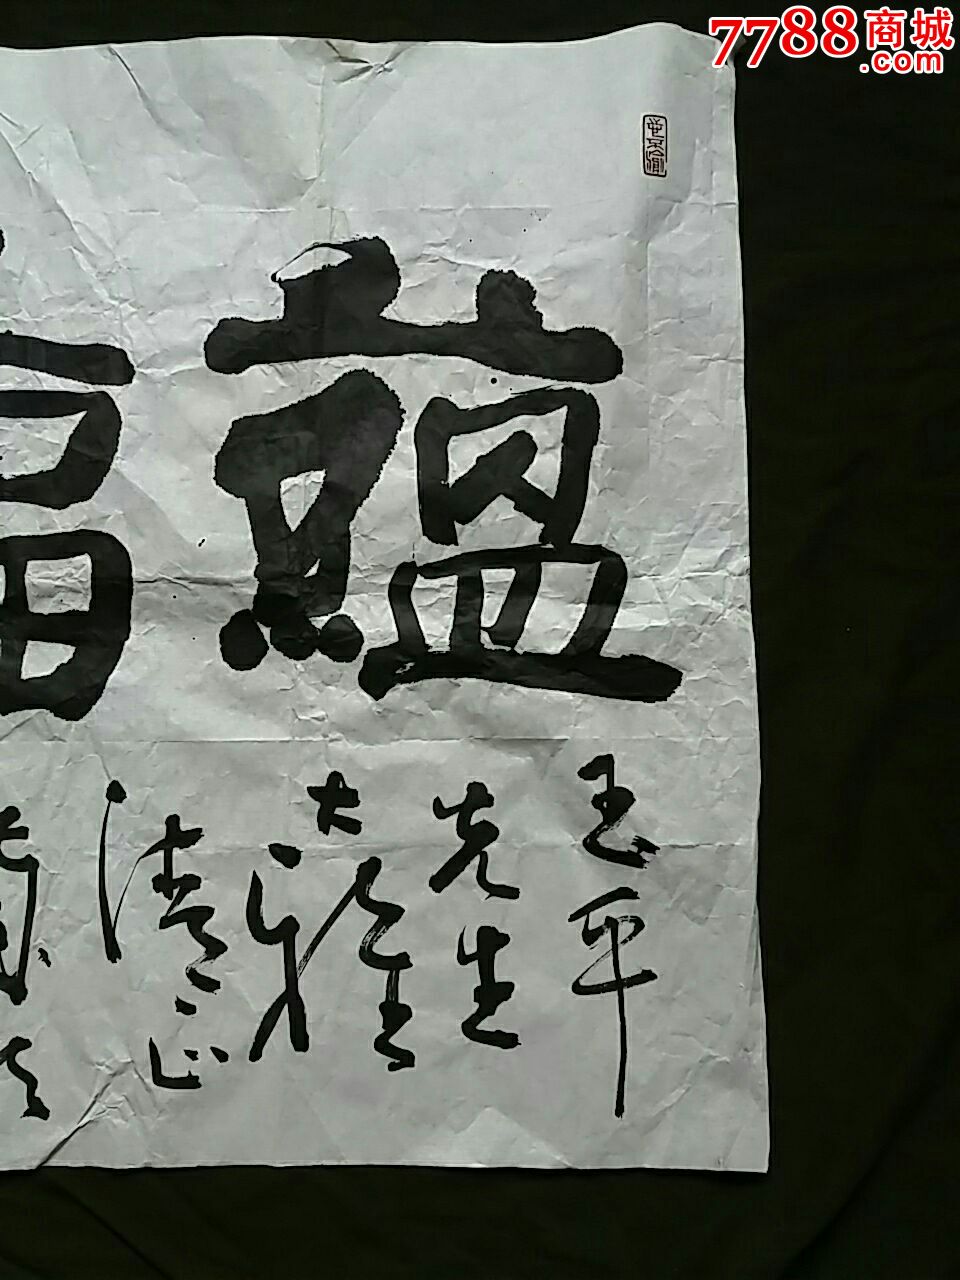 7788商城
.com
蕴福
玉平
先生
大雅
清正